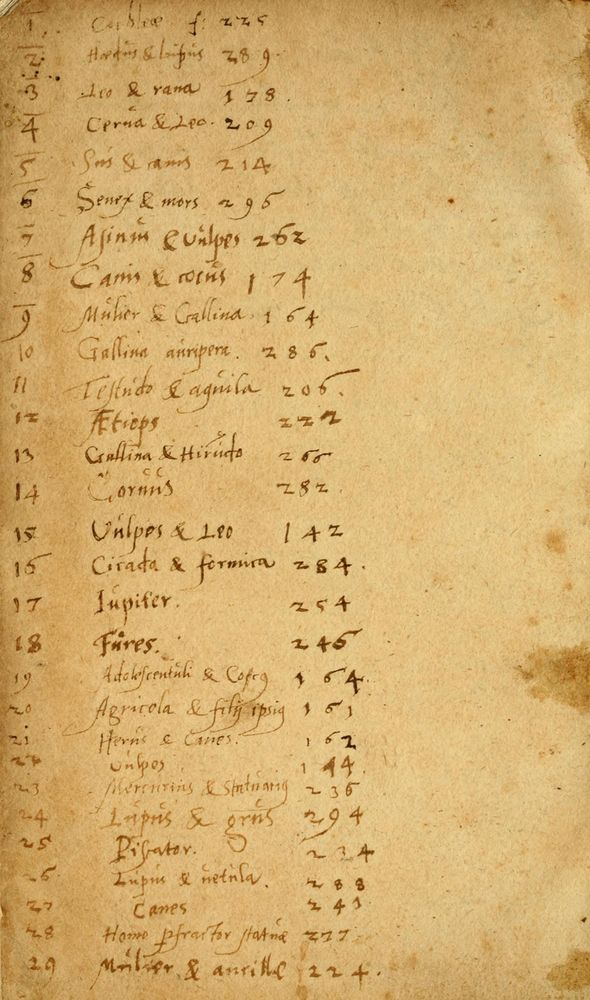 1 Cochleæ f: 225
2 Hœdus & lupus 289.
3 Leo & rana 178.
4 Cerua & Leo. 209
5 Sus & canis 214
6 Senex & mors 296
7 Asinus & Vulpes 262
8 Canis & cocus 174
9 Mulier & Gallina. 164
10 Gallina auripera. 286.
11 Testudo & aquila 206.
12 Ætiops 222
13 Gallina & Hirudo 266
14 Coruus 282.
15 Vulpes & Leo 142
16 Cicada & formica 284.
17 Iupiter. 254
18 Fures. 246
19 Adolescentuli & 164.
20 Agricola & filij ipsiꝰ 161
21 Herus & Canes. 162
22 Vulpes 144.
23 Mercurius & Statuariꝰ 236
24 Lupus & grus 294
25 Piscator. 234
26 Lupus & uetula. 288
27 Canes 241
28 Homo ꝑfractor statuæ 277.
29 Mulier & ancillæ 224.